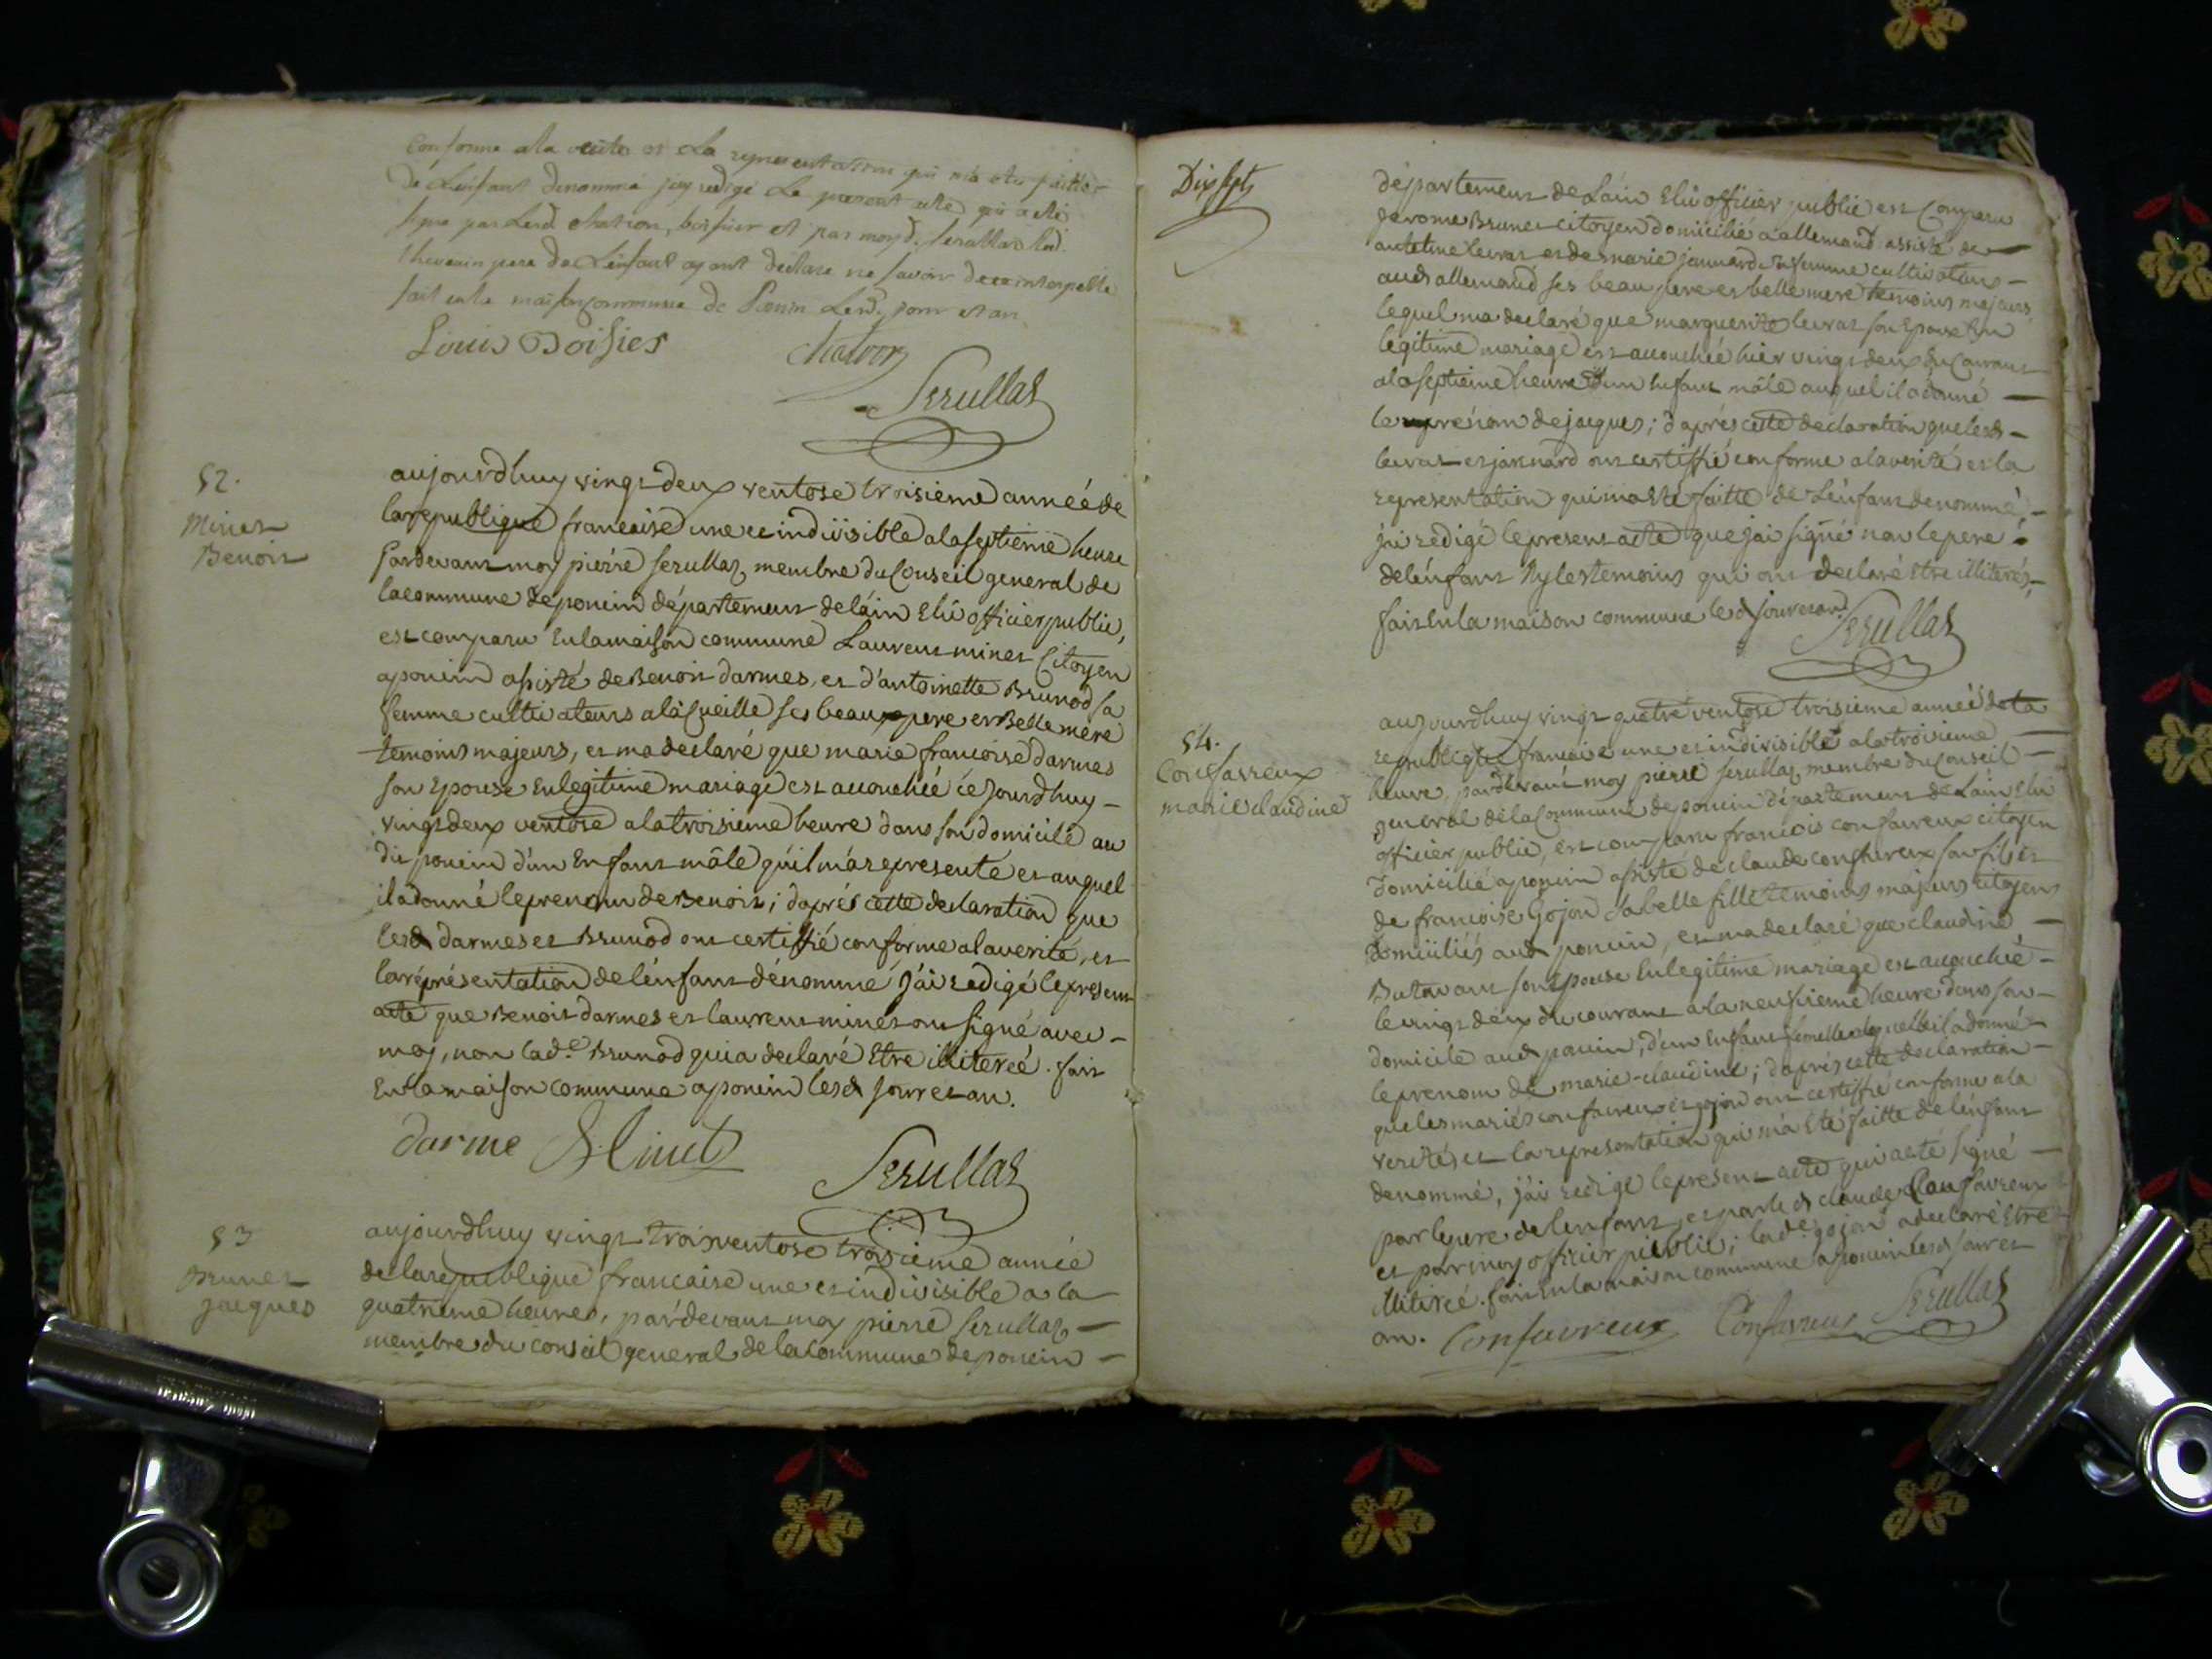 Conforme a la verité et la representation qui m'a ete faitte
de L'enfant denommé j'ay redigé Le present acte qui a eté
signe par Lesd. chatron, boissier et par moyd. serullaz led.
thevenin pere de L'enfant ayant declaré ne savoir de ce interpellé
fait en la maison commune de Poncin Lesd. jour et an
Louis Boissier chatron
Serullaz
52.
Minet
Benoit
aujourdhuy vingt deux ventose troisieme année de
la republique francaise une et indivisible a la septieme heure
Pardevant moy pierre serullaz membre du Conseil general de
la commune de poncin département de l'ain Elû officier public,
est comparu En la maison commune Laurent minet Citoyen
a poncin assisté de Benoit darmes, et d'antoinette Brunod sa
femme cultivateurs a la Cueille ses beaux pere et Belle mere
temoins majeurs, et ma declaré que marie francoise darmes
son Epouse En legitime mariage est accouchée cé Jourdhuy -
vingt deux ventose a la troisieme heure dans son domicile au
dit poncin d'un Enfant mâle qu'il m'a representé et auquel
il a donné le prenom de Benoit; daprés cette declaration que
lesd darmes et Brunod ont certiffié conforme a la verité, et
la représentation de l'énfant dénommé j'ai redigé le present
acte que Benoit darmes et laurent minet ont signé avec -
moy, non lad.e Brunod qui a declaré Etre illiterée. fait
En la maison commune a poncin lesd jour et an.
darme Minet
Serullaz
53
Brunet
jacques
aujourdhuy vingt trois ventose troisieme année
de la republique francaise une et indivisible a la
quatrieme heures, par devant moy pierre serullaz -
membre du conseil general de la Commune de poncin -
Dix sept
département de L'ain Elû officier public est Comparu
Jerome Brunet citoyen domicilié a allemand assisté de -
antelme levrat et de marie jannard sa femme cultivateurs -
aud allemand ses beau pere et belle mere temoins majeurs,
lequel ma declaré que marguerite levrat son Epouse En
legitime mariage est accouchée hier vingt deux du Courant
a la septieme heure d'un Enfant mâle auquel il a donné -
le prénom de jacques; daprés cette declaration que lesd -
levrat et jannard ont certiffié conforme a la verité et la
representation qui m'a Eté faitte de L'énfant denommé, -
j'ai redigé le present acte que j'ai signé non le pere -
de l'énfant Ny les temoins qui ont declaré Etre illiterés, -
fait En la maison commune lesd jour et an.
Serullaz
54.
Confavreux
marie claudine
aujourdhuy vingt quatre ventose troisieme année de la
republique francaise une et indivisible a la troisieme -
heure, pardevant moy pierre serullaz membre du Conseil -
general de la Commune de poncin département de L'ain Elû
officier public, est comparu francois confavreux citoyen
domicilié a poncin assisté de claude confavreux son fils et
de francoise Gojon sa belle fille temoins majeurs citoyens
domiciliés aud poncin, et ma declaré que claudine -
Butavant son Epouse En legitime mariage est accouchée -
le vingt deux du courant a la neufvieme heure dans son -
domicile aud poncin, d'un Enfant femelle a laquelle il a donné -
le prenom de marie-claudine; daprés cette declaration -
que les mariés confavreux et gojon ont certiffié conforme a la
verité et la representation qui m'a Eté faitte de l'énfant
denommé, j'ai redigé le present acte qui a eté signé -
par le pere de l'enfant, et par led claude Confavreux
et par moy officier public; lad.e gojon a declaré Etre
illiterée. fait En la maison commune a poncin lesd jour et
an. Confavreux Confavreux Serullaz